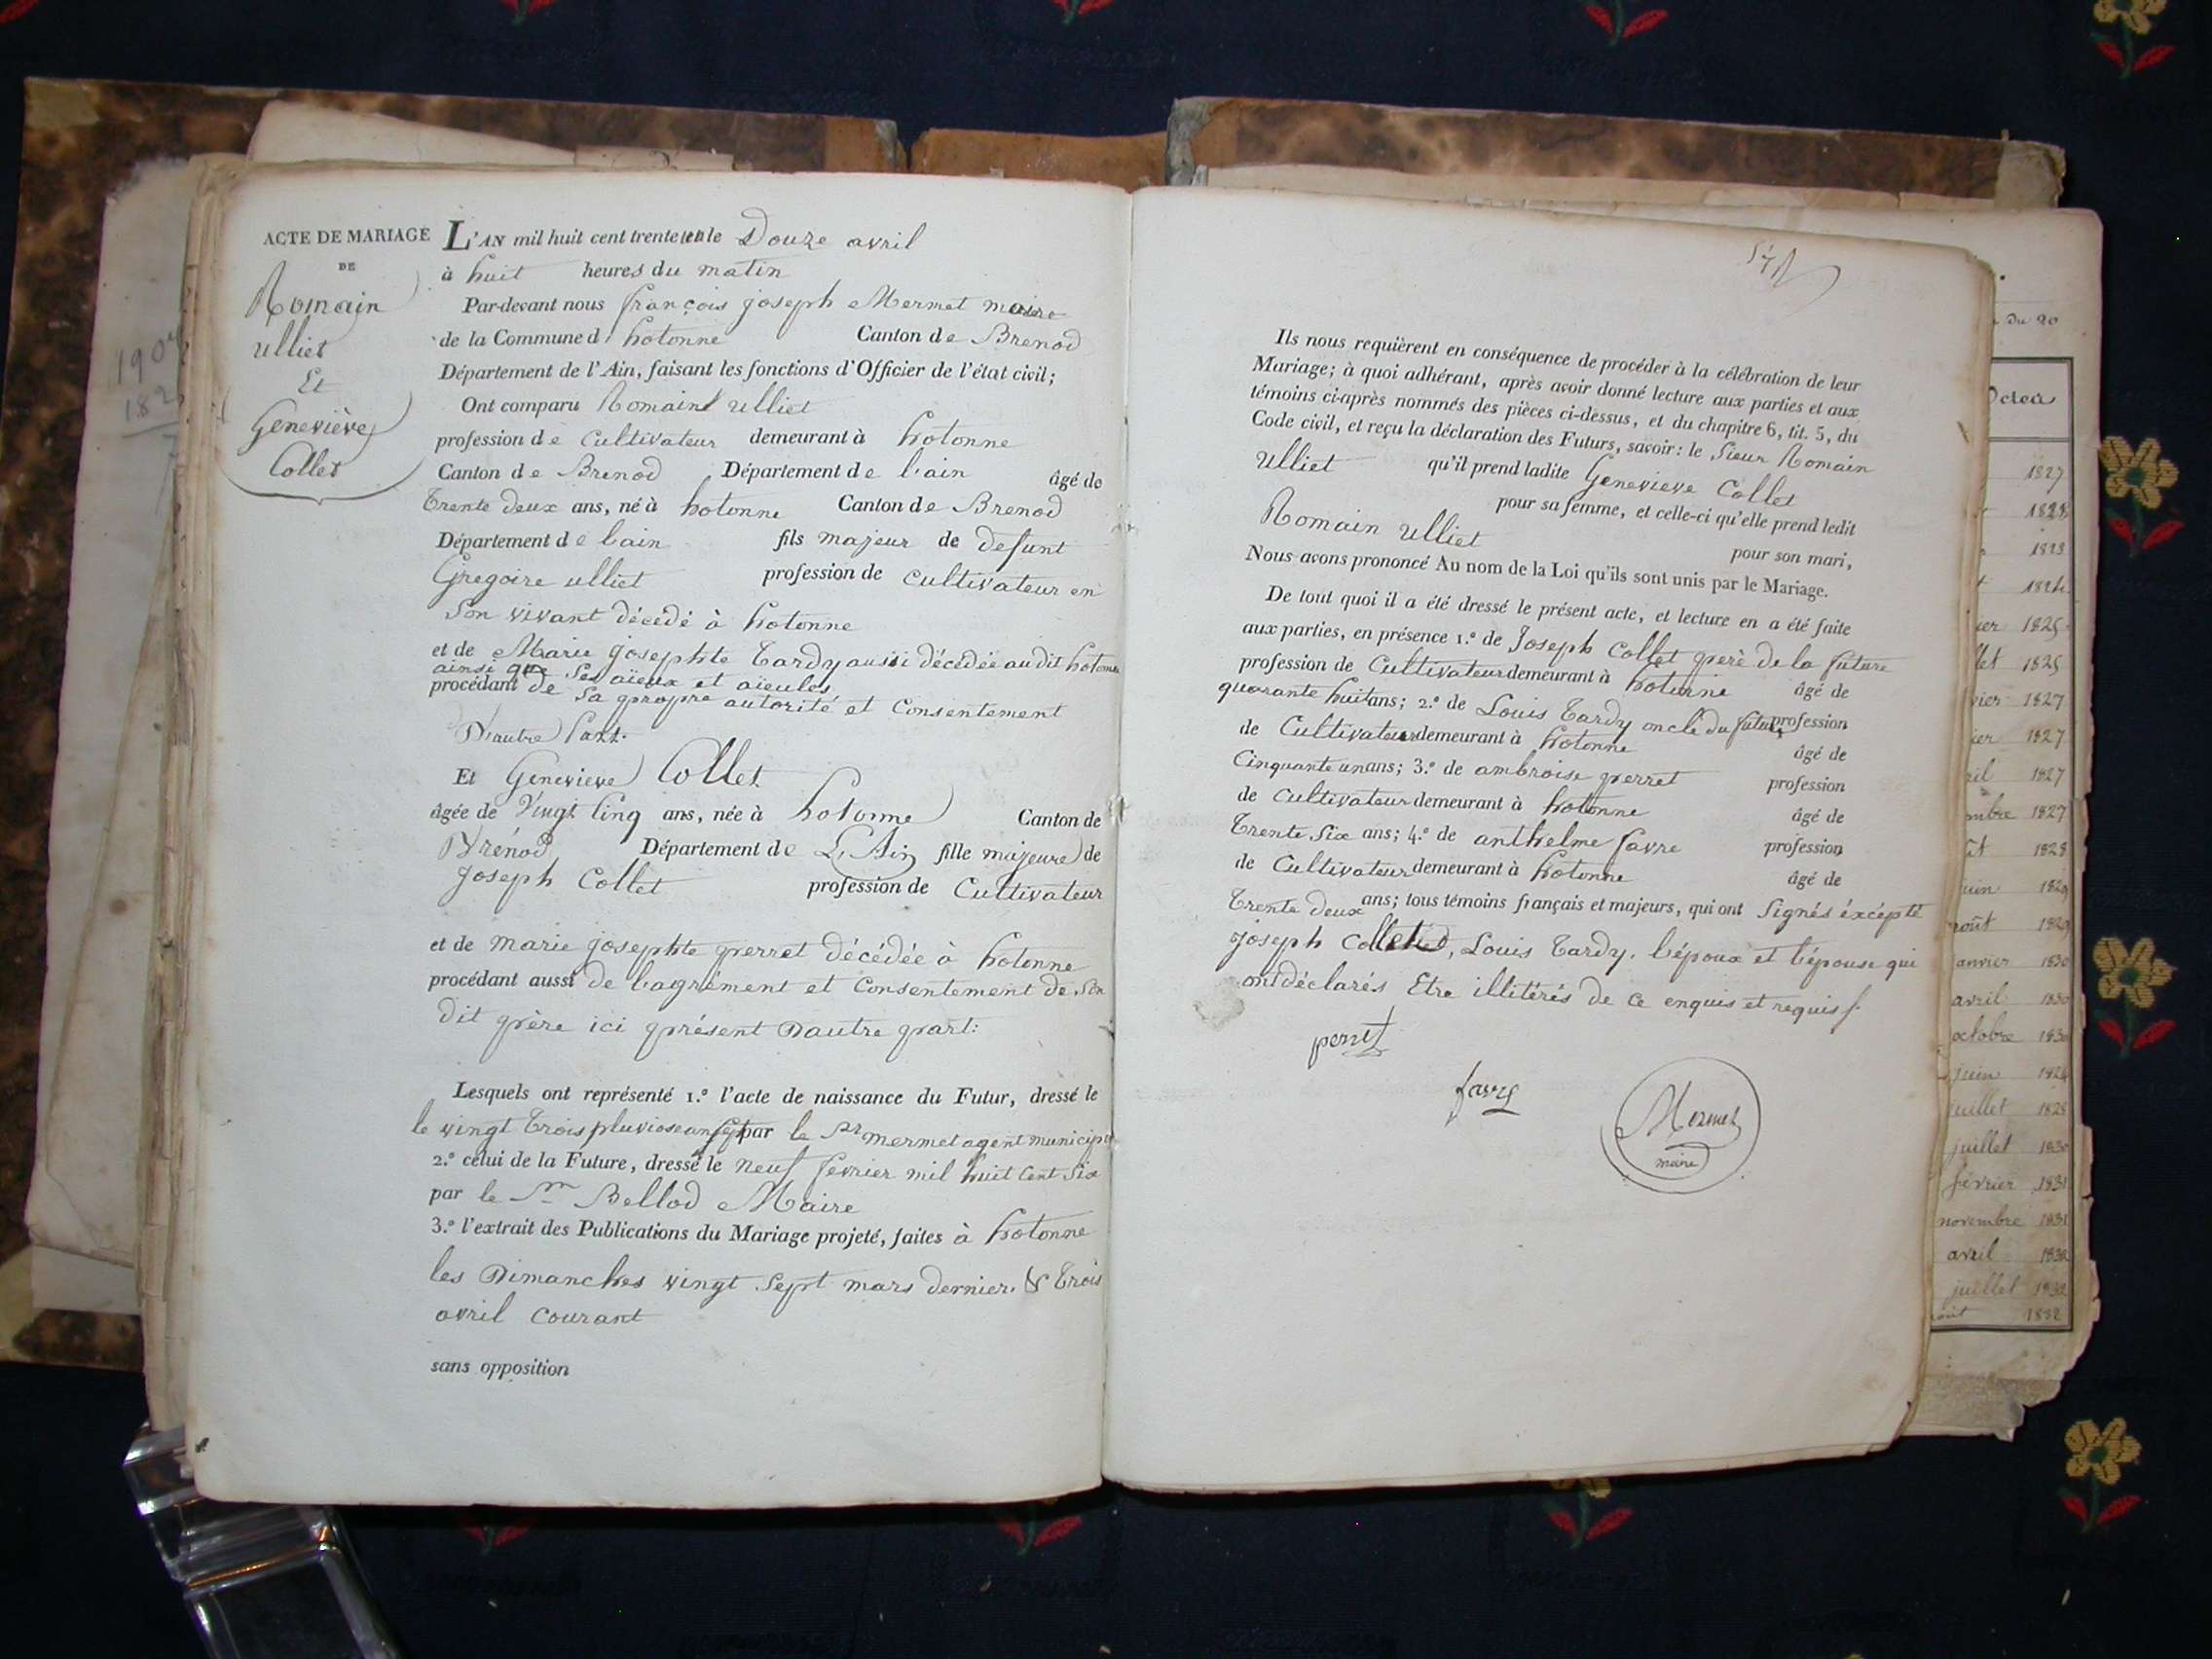 ACTE DE MARIAGE
DE
Romain
Ulliet
Et
Geneviève
Collet
L'AN mil huit cent trente et un le Douze avril
à huit heures du matin
Par-devant nous françois joseph Mermet maire
de la Commune d' hotonne Canton de Brenod
Département de l'Ain, faisant les fonctions d'Officier de l'état civil;
Ont comparu Romain Ulliet
profession de Cultivateur demeurant à hotonne
Canton de Brenod Département de l'ain âgé de
Trente deux ans, né à hotonne Canton de Brenod
Département de l'ain fils majeur de defunt
Gregoire ulliet profession de Cultivateur en
Son vivant décédé à hotonne
et de Marie josephte Tardy aussi décédée audit hotonne
ainsi que Ses aïeux et aïeules
procédant de Sa propre autorité et Consentement
D'autre Part.
Et Genevieve Collet
âgée de Vingt Cinq ans, née à hotonne Canton de
Brénod Département de L'Ain fille majeure de
Joseph Collet profession de Cultivateur
et de marie josephte perret décédée à hotonne
procédant aussi de l'agrément et Consentement de Son
dit père ici présent Dautre part:
Lesquels ont représenté 1.º l'acte de naissance du Futur, dressé le
le vingt Trois pluviose an sept par le Sr mermet agent municipal
2.º celui de la Future, dressé le neuf fevrier mil huit Cent Six
par le Sr Bellod Maire
3.º l'extrait des Publications du Mariage projeté, faites à hotonne
les Dimanches vingt Sept mars dernier & Trois
avril Courant
sans opposition
Ils nous requièrent en conséquence de procéder à la célébration de leur
Mariage; à quoi adhérant, après avoir donné lecture aux parties et aux
témoins ci-après nommés des pièces ci-dessus, et du chapitre 6, tit. 5, du
Code civil, et reçu la déclaration des Futurs, savoir: le Sieur Romain
Ulliet qu'il prend ladite Genevieve Collet
pour sa femme, et celle-ci qu'elle prend ledit
Romain Ulliet pour son mari,
Nous avons prononcé Au nom de la Loi qu'ils sont unis par le Mariage.
De tout quoi il a été dressé le présent acte, et lecture en a été faite
aux parties, en présence 1.º de Joseph Collet père de la future
profession de Cultivateur demeurant à hotonne âgé de
quarante huit ans; 2.º de Louis Tardy oncle du futur profession
de Cultivateur demeurant à hotonne âgé de
Cinquante un ans; 3.º de ambroise perret profession
de Cultivateur demeurant à hotonne âgé de
Trente Six ans; 4.º de anthelme favre profession
de Cultivateur demeurant à hotonne âgé de
Trente deux ans; tous témoins français et majeurs, qui ont Signés éxcépté
joseph Collet, Louis Tardy, l'époux et l'épouse qui
ont déclarés Etre illitérés de ce enquis et requis
perret
favre
Mermet
maire
1904
182
du 20
1827
1823
1824
1825
1825
vier 1827
ier 1827
ril 1827
mbre 1827
ût 1828
juin 1829
août 1829
janvier 1830
avril 1830
octobre 1830
juin 1824
juillet 1828
juillet 1830
février 1831
novembre 1831
avril 1832
juillet 1832
août 1832